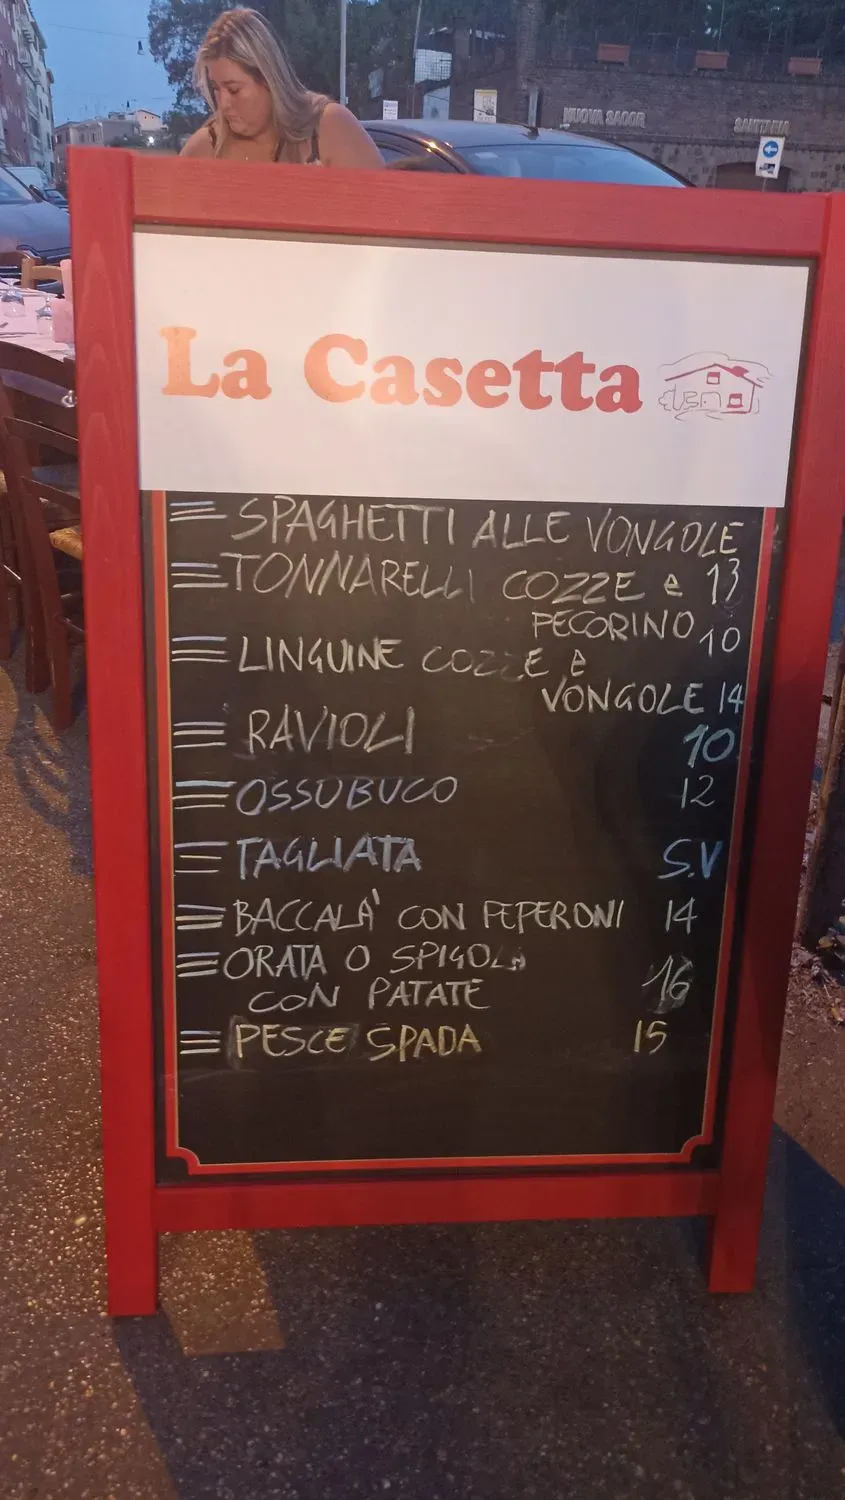 NUOVA SACOR
SANITARIA
La Casetta
SPAGHETTI ALLE VONGOLE
13
TONNARELLI COZZE e
PECORINO 10
LINGUINE COZZE E
VONGOLE 14
RAVIOLI 10
OSSOBUCO 12
TAGLIATA S.V
BACCALA' CON PEPERONI 14
ORATA O SPIGOLA
CON PATATE 16
PESCE SPADA 15